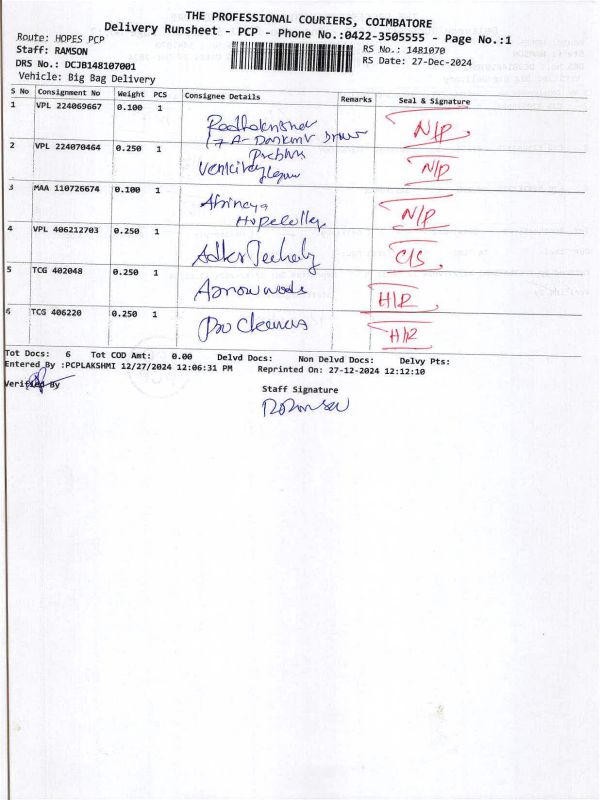 THE PROFESSIONAL COURIERS, COIMBATORE
Delivery Runsheet - PCP - Phone No.:0422-3505555 - Page No.:1
Route: HOPES PCP
Staff: RAMSON
RS No.: 1481070
DRS No.: DCJB148107001
RS Date: 27-Dec-2024
Vehicle: Big Bag Delivery
S No Consignment No Weight PCS Consignee Details Remarks Seal & Signature
1 VPL 224069667 0.100 1 N/P
2 VPL 224070464 0.250 1 N/P
3 MAA 110726674 0.100 1 N/P
4 VPL 406212703 0.250 1 C/S
5 TCG 402048 0.250 1 H/R
6 TCG 406220 0.250 1 H/R
Tot Docs: 6 Tot COD Amt: 0.00 Delvd Docs: Non Delvd Docs: Delvy Pts:
Entered By :PCPLAKSHMI 12/27/2024 12:06:31 PM Reprinted On: 27-12-2024 12:12:10
Verified By
Staff Signature